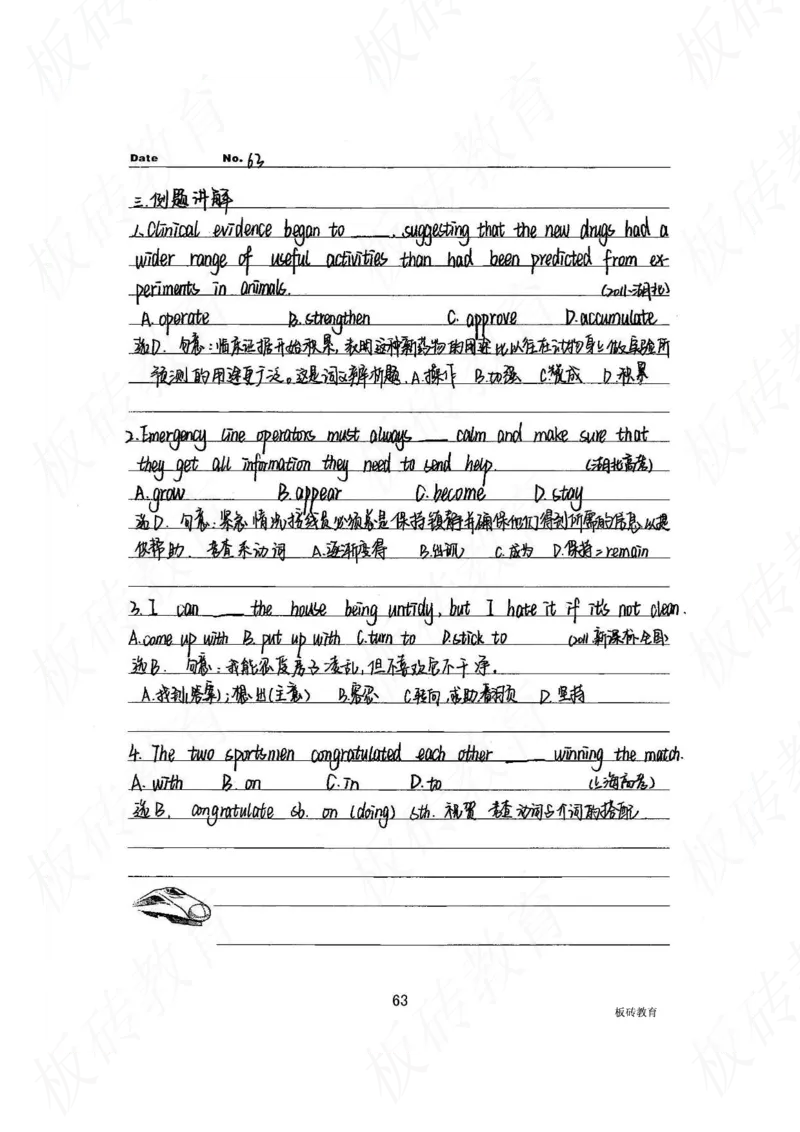 Date No. 63
三.例题讲解
1. Clinical evidence began to ____, suggesting that the new drugs had a
wider range of useful activities than had been predicted from ex-
periments in animals. (2011·湖北)
A. operate B. strengthen C. approve D. accumulate
选D. 句意:临床证据开始积累,表明这种新药物的用途比以往在动物身上做实验所
预测的用途更广泛。这是词义辨析题. A.操作 B.加强 C.赞成 D.积累
2. Emergency line operators must always ___ calm and make sure that
they get all information they need to send help. (湖北高考)
A. grow B. appear C. become D. stay
选D. 句意:紧急情况接线员必须总是保持镇静并确保他们得到所需的信息以提
供帮助. 考查系动词 A.逐渐变得 B.出现 C.成为 D.保持=remain
3. I can ___ the house being untidy, but I hate it if it's not clean.
A. come up with B. put up with C. turn to D. stick to (2011新课标全国)
选B. 句意:我能忍受房子凌乱,但不喜欢它不干净.
A.找到(答案);想出(主意) B.容忍 C.转向,求助,翻页 D.坚持
4. The two sportsmen congratulated each other ____ winning the match.
A. with B. on C. in D. to (上海高考)
选B. congratulate sb. on (doing) sth. 祝贺 考查动词与介词的搭配
63
板砖教育